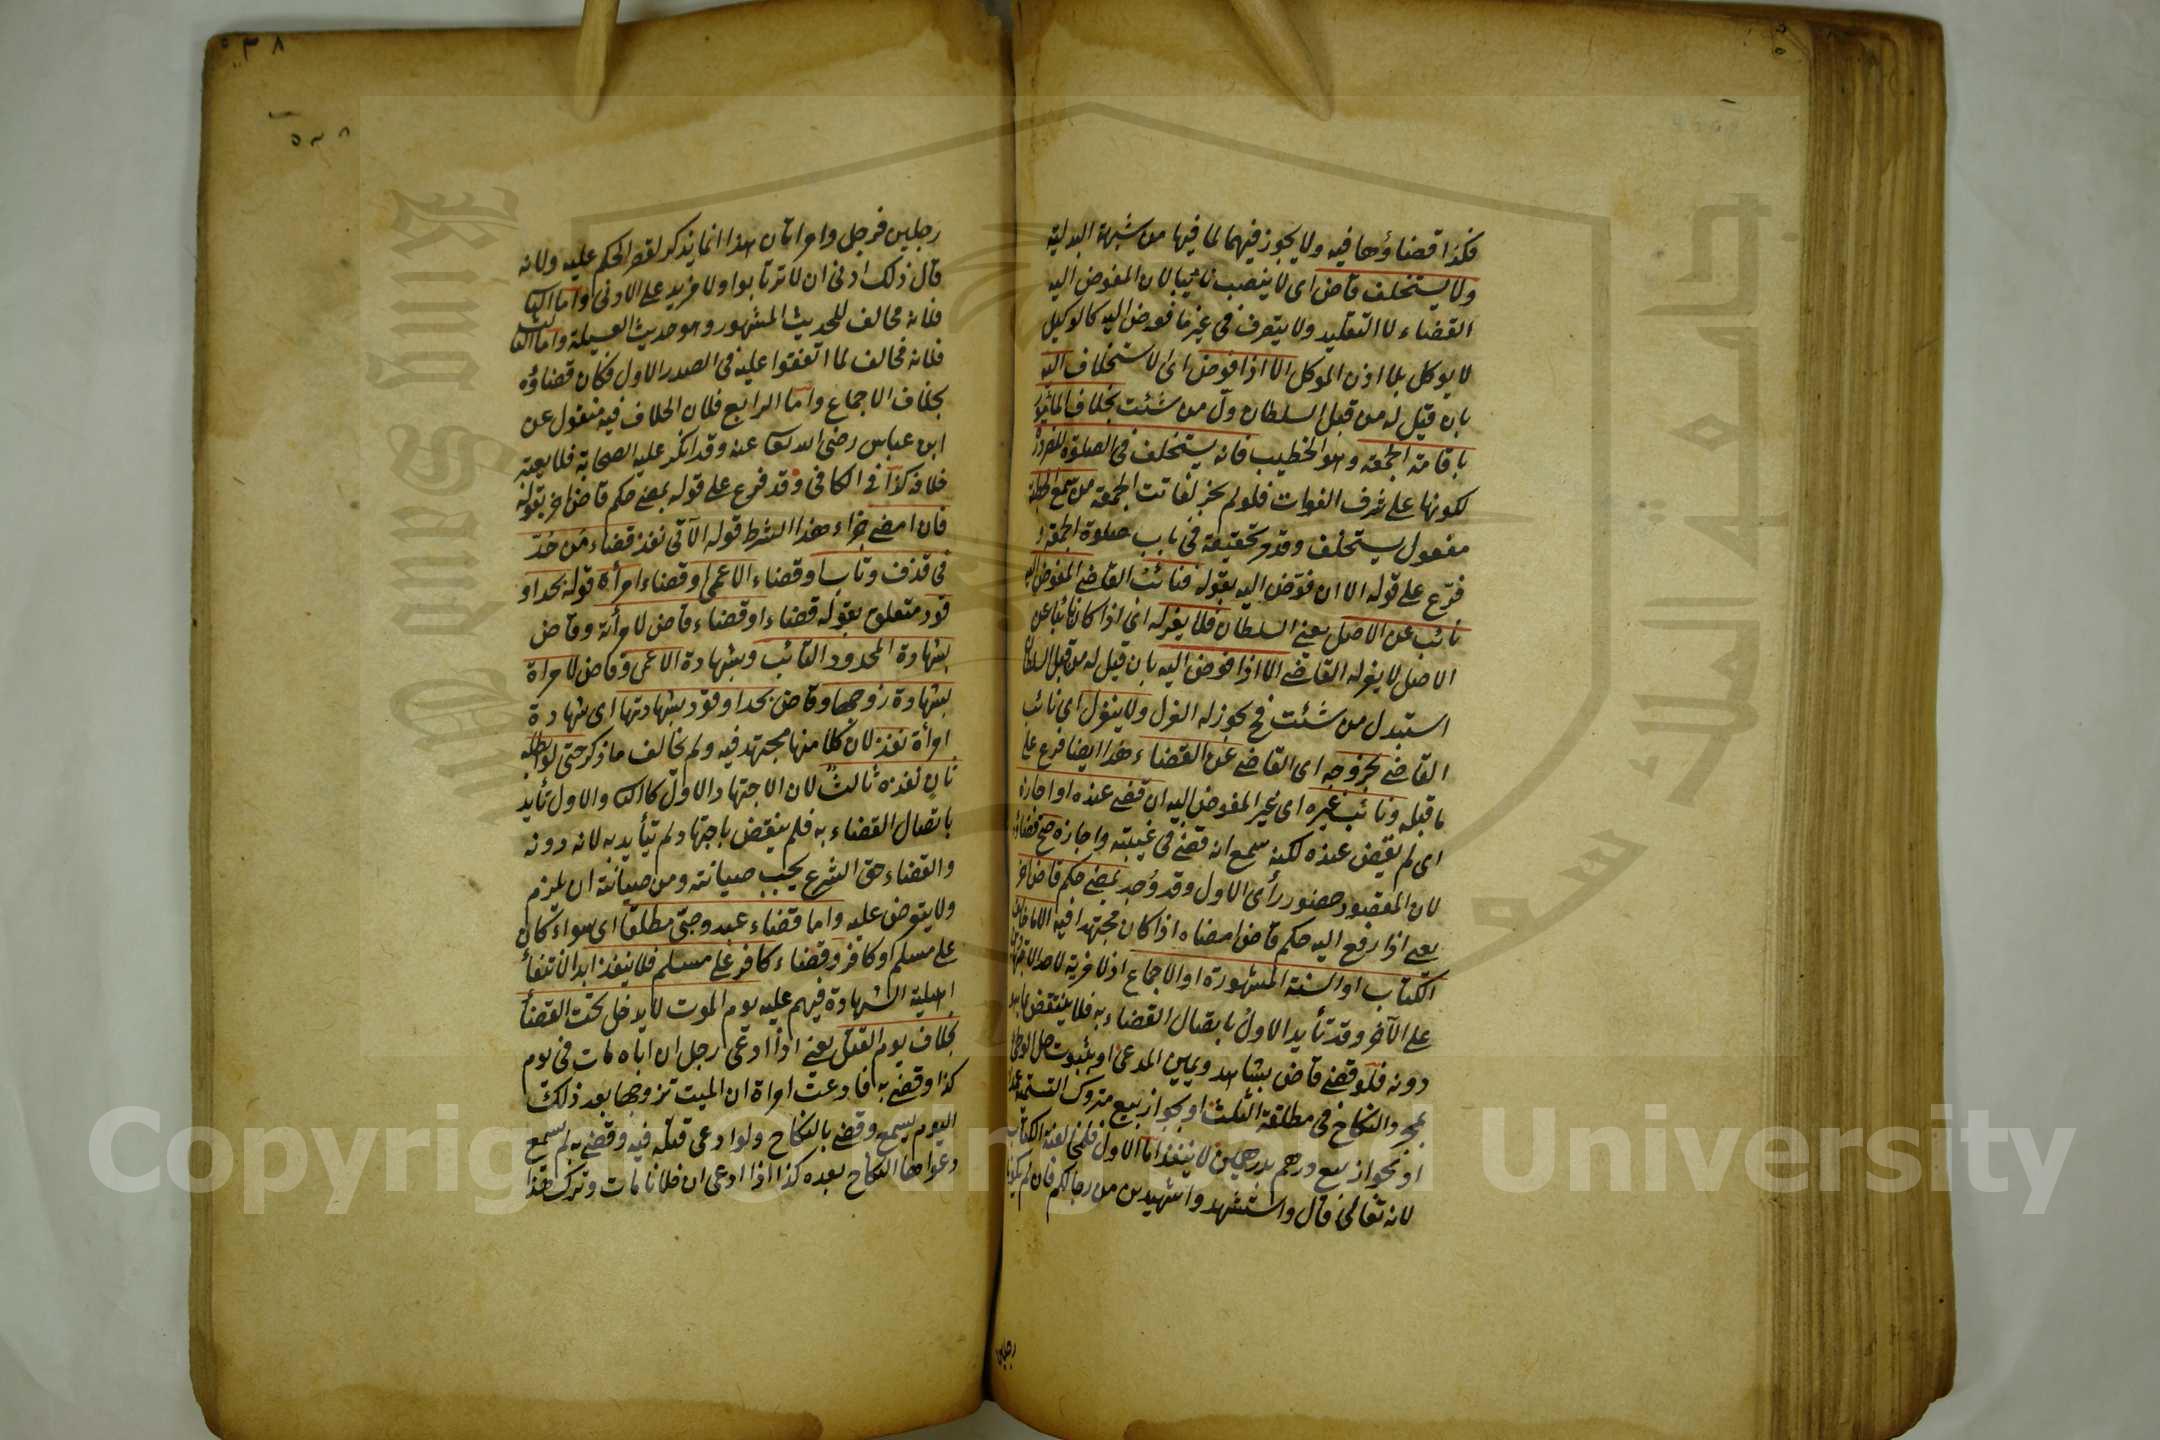 فكذا قضاؤها فيه ولا يجوز فيهما لما فيها من شبهة البدلية
ولا يستخلف قاض اى لا ينصب نائبا لان المفوض اليه
القضاء لا التقليد ولا يتصرف فى غير ما فوض اليه كالوكيل
لا يوكل بلا اذن الموكل الا اذا فوض اى الاستخلاف اليه
بان قيل له من قبل السلطان ول من شئت بخلاف المأمور
باقامة الجمعة وهو الخطيب فانه يستخلف فى الصلوة للضرورة
لكونها على شرف الفوات فلو لم يجز لفاتت الجمعة من سمع الخطبة
مفعول يستخلف وقد مر تحقيقه فى باب صلوة الجمعة و
فرع على قوله الا ان فوض اليه بقوله فنائب القاضى المفوض اليه
نائب عن الاصل يعنى السلطان فلا يعزله اى اذا كان نائبا عن
الاصل لا يعزله القاضى الا اذا فوض اليه بان قيل له من قبل السلطان
استبدل من شئت فح يجوز له العزل ولا ينعزل اى نائب
القاضى بخروجه اى القاضى عن القضاء هذا ايضا فرع على
ما قبله ونائب غيره اى غير المفوض اليه ان قضى عنده او اجازه
اى لم يقض عنده لكنه سمع انه قضى فى غيبته واجازه صح قضاؤه
لان المقصود حضور رأى الاول وقد وجد يمضى حكم قاض اخر
يعنى اذا رفع اليه حكم قاض امضاه اذا كان مجتهدا فيه الا ما خالف
الكتاب او السنة المشهورة او الاجماع اذ لا مزية لاحد الاجتهادين
على الآخر وقد تأيد الاول باتصال القضاء به فلا ينتقض بما هو
دونه فلو قضى قاض بشاهد ويمين المدعى او بثبوت حل الوطئ
بمجرد النكاح فى مطلقة الثلث او بجواز بيع متروك التسمية عمدا
او بجواز بيع درهم بدرهمين لا ينفذ اما الاول فلمخالفة الكتاب
لانه تعالى قال واستشهدوا شهيدين من رجالكم فان لم يكونا
رجلين
٥٣٨
٥٣٨
رجلين فرجل وامرأتان هذا انما يذكر لقصر الحكم عليه ولانه
قال ذلك ادنى ان لا ترتابوا ولا مزيد على الادنى واما الثانى
فلانه مخالف للحديث المشهور وهو حديث العسيلة واما الثالث
فلانه مخالف لما اتفقوا عليه فى الصدر الاول فكان قضاؤه
بخلاف الاجماع واما الرابع فلان الخلاف فيه منقول عن
ابن عباس رضى الله تعا عنه وقد انكر عليه الصحابة فلا يعتبر
خلافه كذا فى الكافى وقد فرع على قوله يمضى حكم قاض اخر بقوله
فان امضى جزاء هذا الشرط قوله الآتى نفذ قضاء من حد
فى قذف وتاب او قضاء الاعمى او قضاء امرأة قوله بحد او
قود متعلق بقوله قضاء او قضاء قاض لامرأته وقاض
بشهادة المحدود التائب وبشهادة الاعمى وقاض لامراة
بشهادة زوجها وقاض بحد او قود بشهادتها اى شهادة
امرأة نفذ لان كلا منها مجتهد فيه ولم يخالف ما ذكر حتى لو ابطله
ثان نفذه ثالث لان الاجتهاد الاول كالثانى والاول تأيد
باتصال القضاء به فلم ينقض باجتهاد لم يتأيد به لانه دونه
والقضاء حق الشرع يجب صيانته ومن صيانته ان يلزم
ولا يتعرض عليه واما قضاء عبد وصبى مطلقا اى سواء كان
على مسلم او كافر وقضاء كافر على مسلم فلا ينفذ ابدا لانتفاء
اهلية الشهادة فيهم عليه يوم الموت لا يدخل تحت القضاء
بخلاف يوم القتل يعنى اذا ادعى رجل ان اباه مات فى يوم
كذا وقضى به فادعت امراة ان الميت تزوجها بعد ذلك
اليوم يسمع وقضى بالنكاح ولو ادعى قتله فيه وقضى به لم يسمع
دعواها النكاح بعده كذا اذا ادعى ان فلانا مات وترك هذا
Copyright © King Saud University